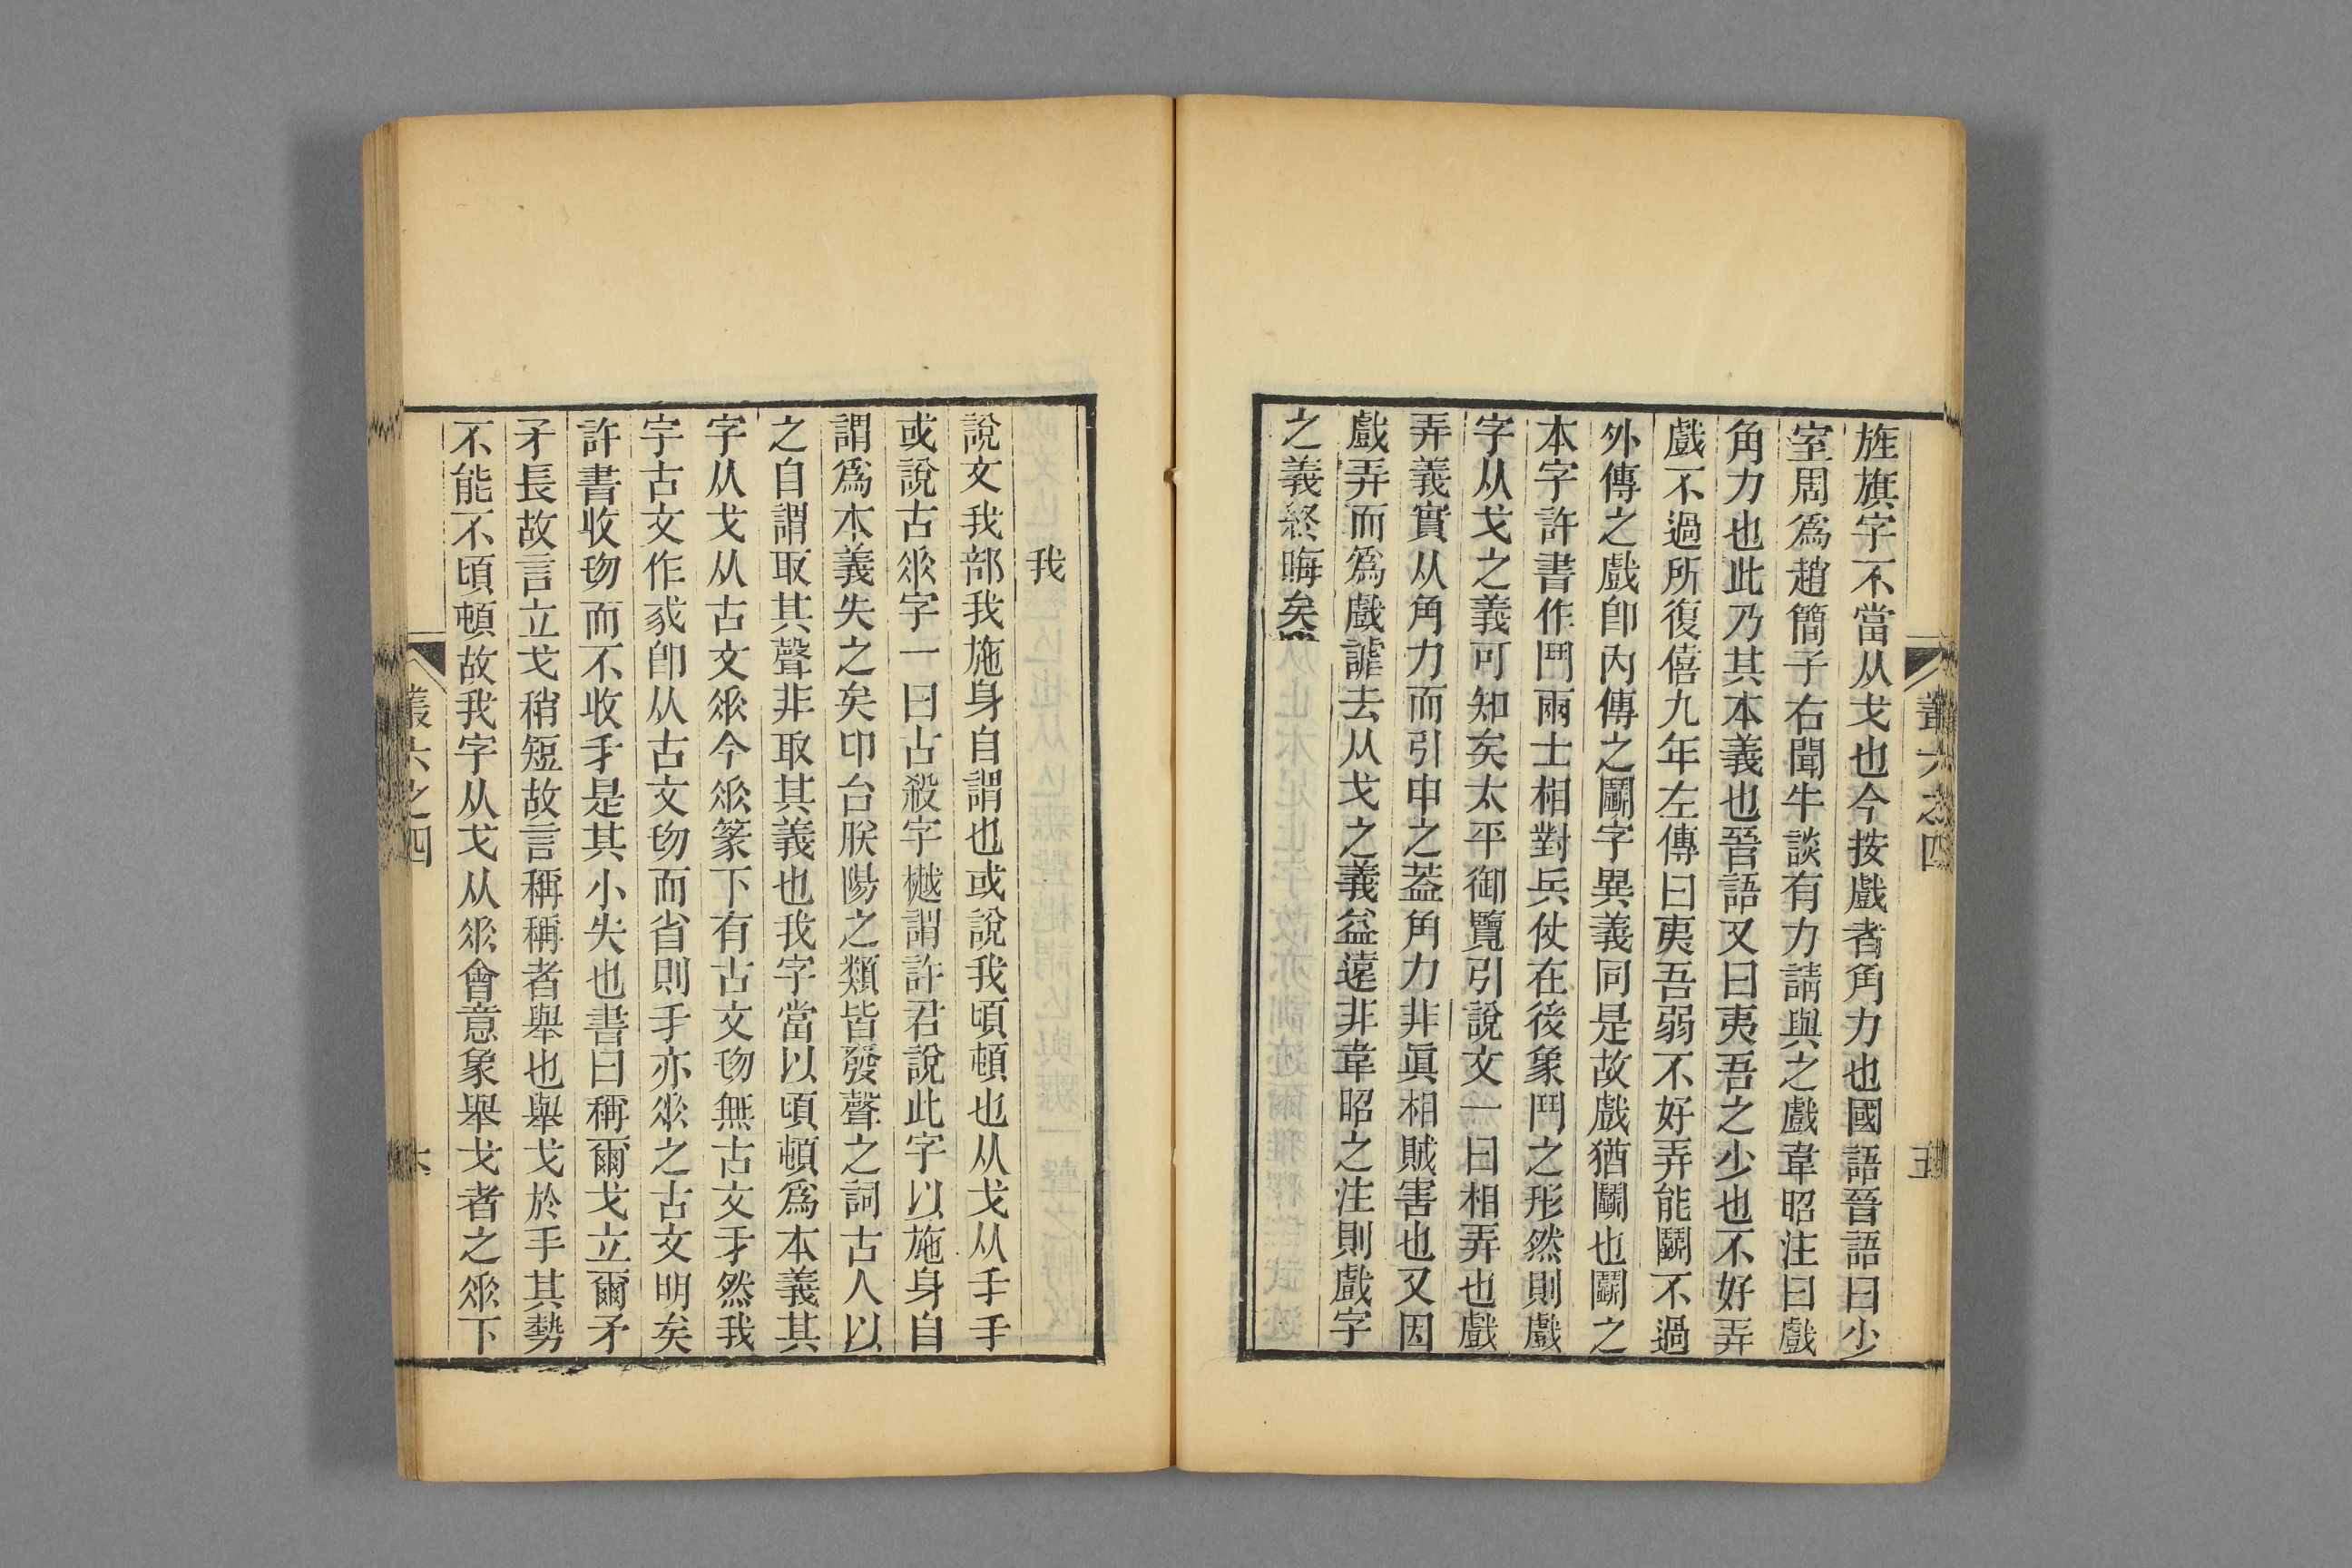 旌旗字不當从戈也今按戲者角力也國語晉語曰少
室周爲趙簡子右聞牛談有力請與之戲韋昭注曰戲
角力也此乃其本義也晉語又曰夷吾之少也不好弄
戲不過所復僖九年左傳曰夷吾弱不好弄能鬭不過
外傳之戲卽內傳之鬭字異義同是故戲猶鬭也鬭之
本字許書作鬥兩士相對兵仗在後象鬥之形然則戲
字从戈之義可知矣太平御覽引說文一曰相弄也戲
弄義實从角力而引申之葢角力非眞相賊害也又因
戲弄而爲戲謔去从戈之義益遠非韋昭之注則戲字
之義終晦矣
叢六之四
五
我
說文我部我施身自謂也或說我頃頓也从戈从𠂹𠂹
或說古𠂹字一曰古殺字樾謂許君說此字以施身自
謂爲本義失之矣卬台朕陽之類皆發聲之詞古人以
之自謂取其聲非取其義也我字當以頃頓爲本義其
字从戈从古文𠂹今𠂹篆下有古文𠣔無古文𠂹然我
字古文作𢦠卽从古文𠣔而省則𠂹亦𠂹之古文明矣
許書收𠣔而不收𠂹是其小失也書曰稱爾戈立爾矛
矛長故言立戈稍短故言稱稱者舉也舉戈於手其勢
不能不頃頓故我字从戈从𠂹會意象舉戈者之𠂹下
叢六之四
六